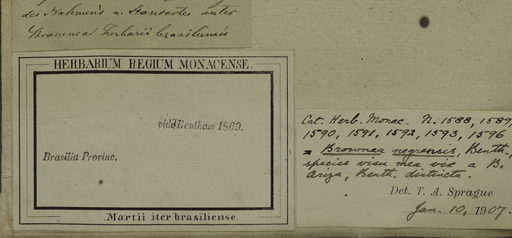 des Nahmens u. Standortes unter
Brownea Herbarii brasiliensis
HERBARIUM REGIUM MONACENSE.
vidi Bentham 1869.
Brasilia Provinc.
Martii iter brasiliense.
Cat. Herb. Monac. N. 1588, 1589,
1590, 1591, 1592, 1593, 1596
= Brownea negrensis, Benth.,
species visu mea vix a B.
Ariza, Benth. distincta.
Det. T. A. Sprague
Jan. 10, 1907.